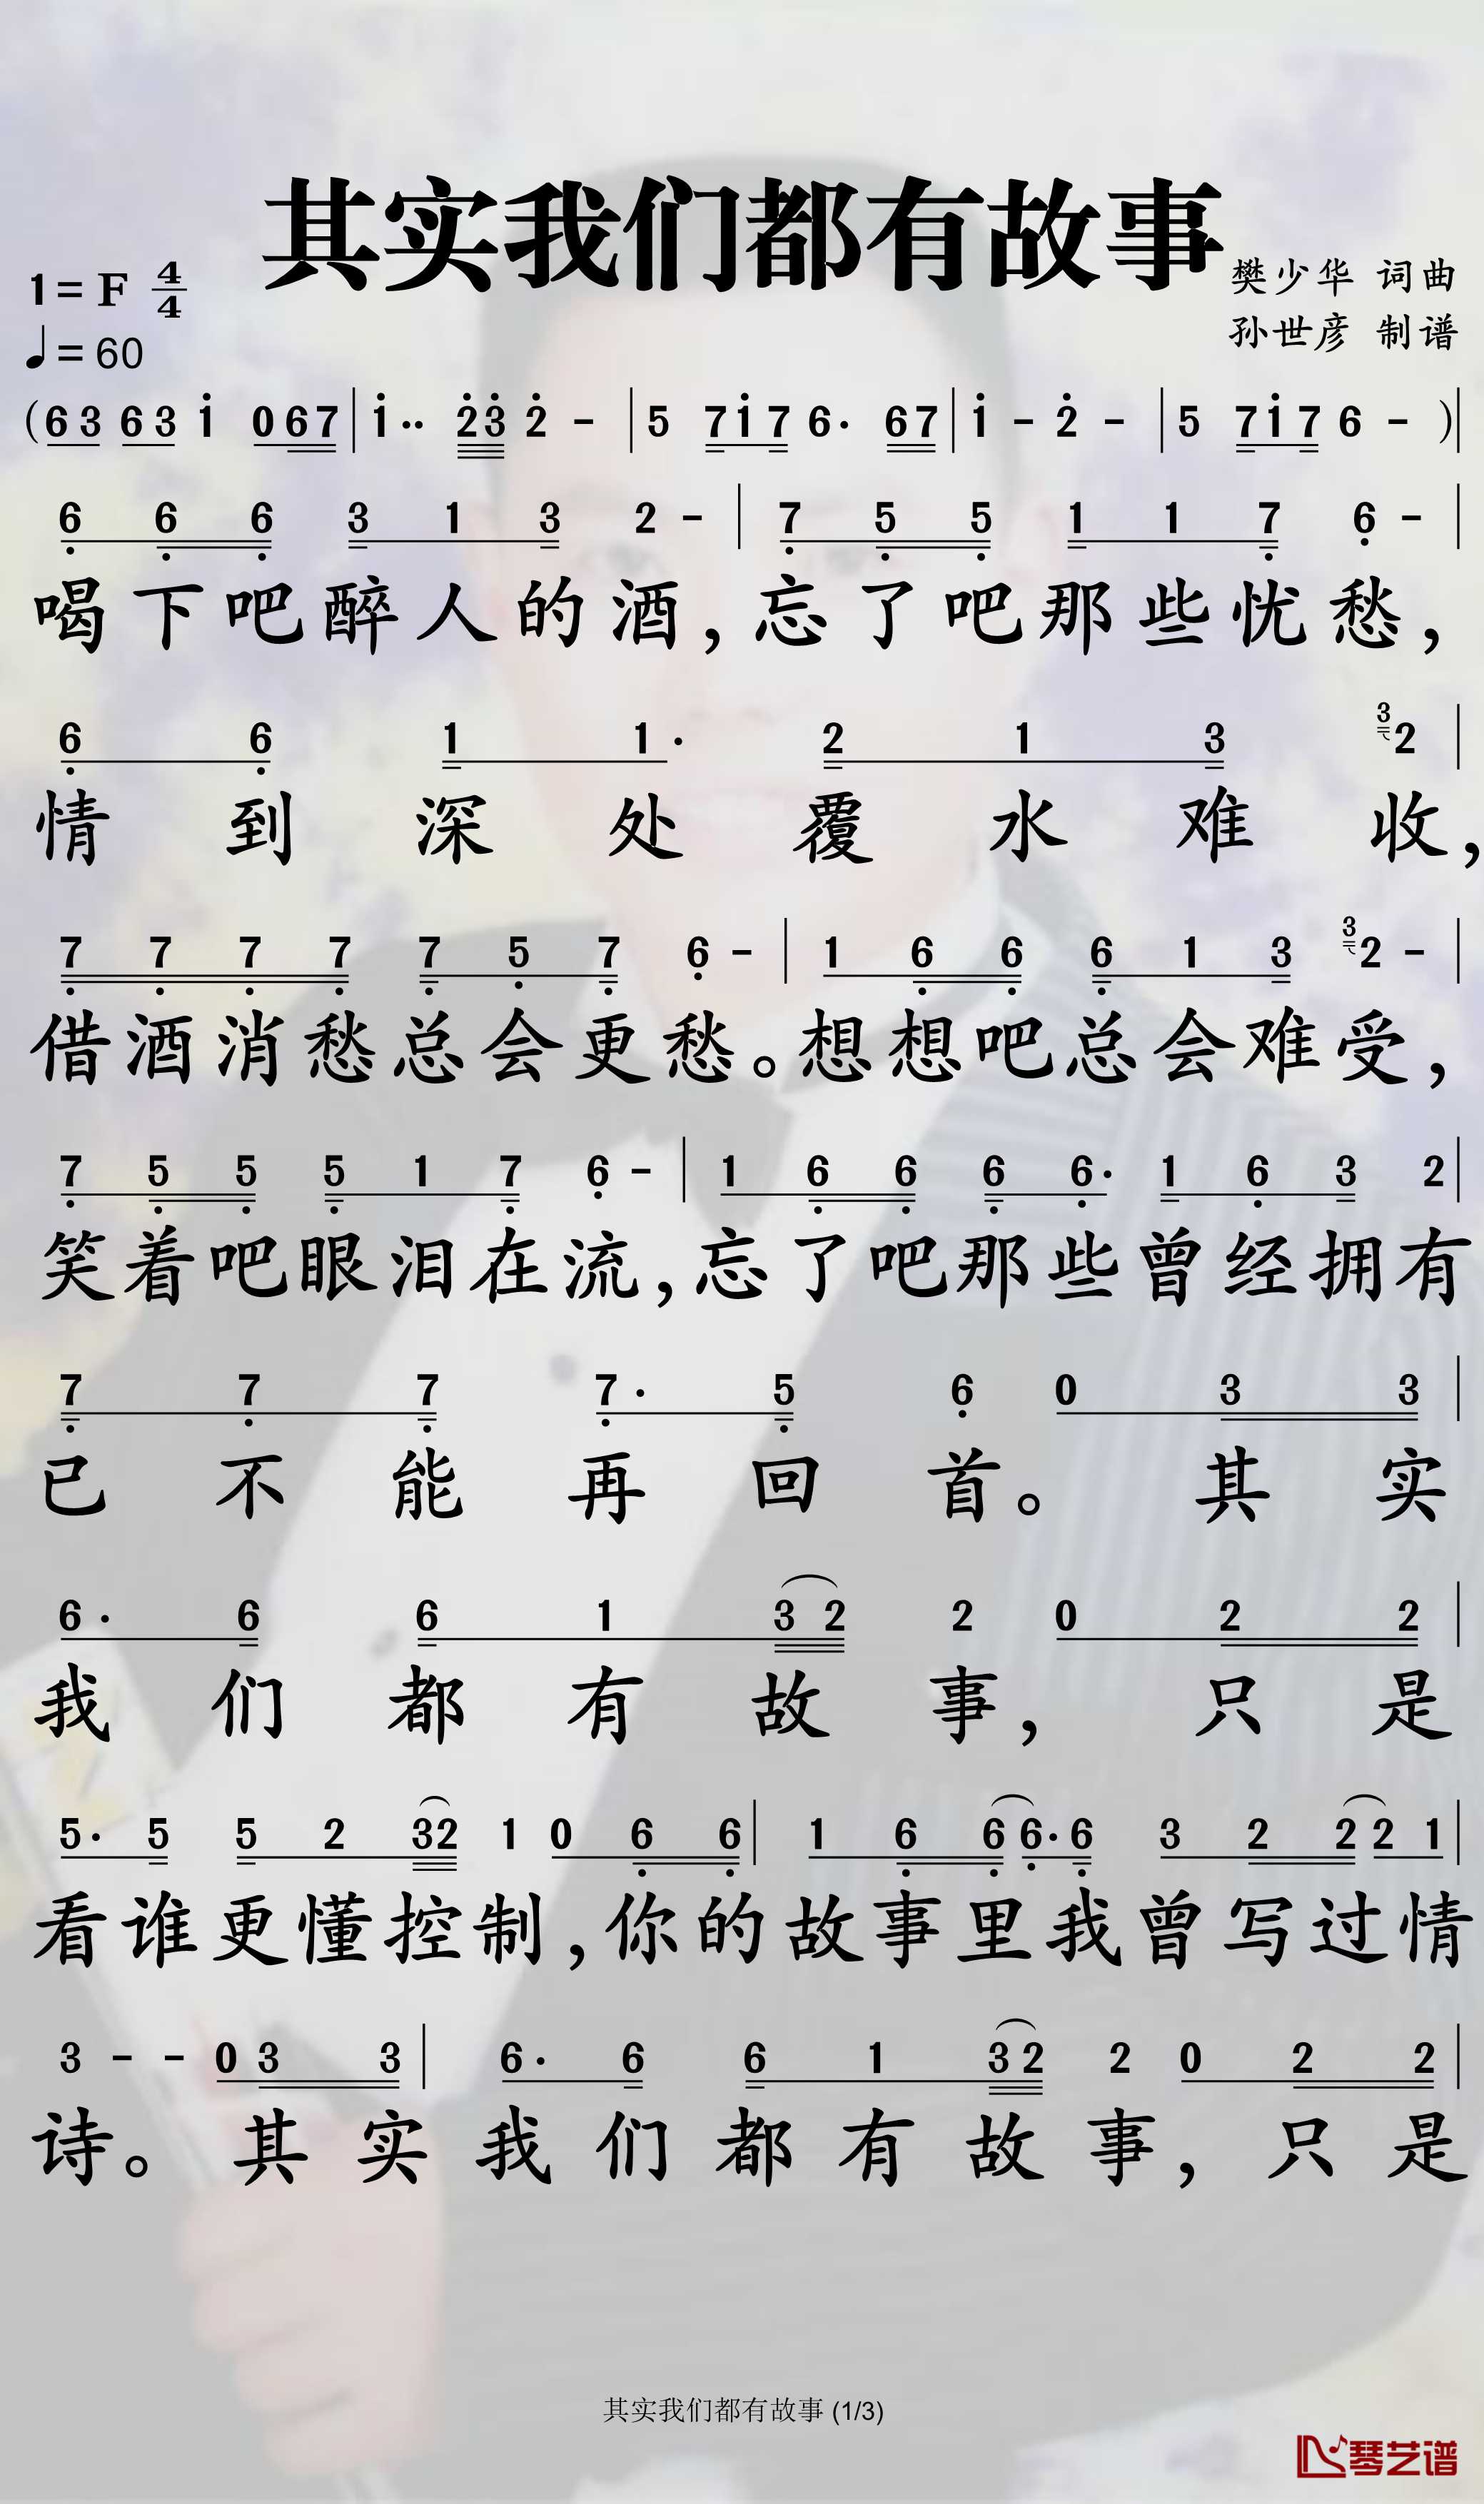 其实我们都有故事
1=F 4/4
樊少华 词曲
♩=60
孙世彦 制谱
(6 3 6 3 1̇ 0 6 7 | 1̇ ·· 2̇ 3̇ 2̇ - | 5 7 1̇ 7 6 · 6 7 | 1̇ - 2̇ - | 5 7 1̇ 7 6 - )|
6̣ 6̣ 6̣ 3 1 3 2 - | 7̣ 5̣ 5̣ 1 1 7̣ 6̣ - |
喝下吧醉人的酒,忘了吧那些忧愁,
6̣ 6̣ 1 1 · 2 1 3 3 2 |
情到深处覆水难收,
7̣ 7̣ 7̣ 7̣ 7̣ 5̣ 7̣ 6̣ - | 1 6̣ 6̣ 6̣ 1 3 3 2 - |
借酒消愁总会更愁。想想吧总会难受,
7̣ 5̣ 5̣ 5̣ 1 7̣ 6̣ - | 1 6̣ 6̣ 6̣ 6̣ · 1 6̣ 3 2 |
笑着吧眼泪在流,忘了吧那些曾经拥有
7̣ 7̣ 7̣ 7̣ · 5̣ 6̣ 0 3 3 |
已不能再回首。其实
6 · 6 6 1 3 2 2 0 2 2 |
我们都有故事,只是
5 · 5 5 2 3 2 1 0 6̣ 6̣ | 1 6̣ 6̣ 6̣ · 6̣ 3 2 2 2 1 |
看谁更懂控制,你的故事里我曾写过情
3 - - 0 3 3 | 6 · 6 6 1 3 2 2 0 2 2 |
诗。其实我们都有故事,只是
其实我们都有故事 (1/3)
琴艺谱